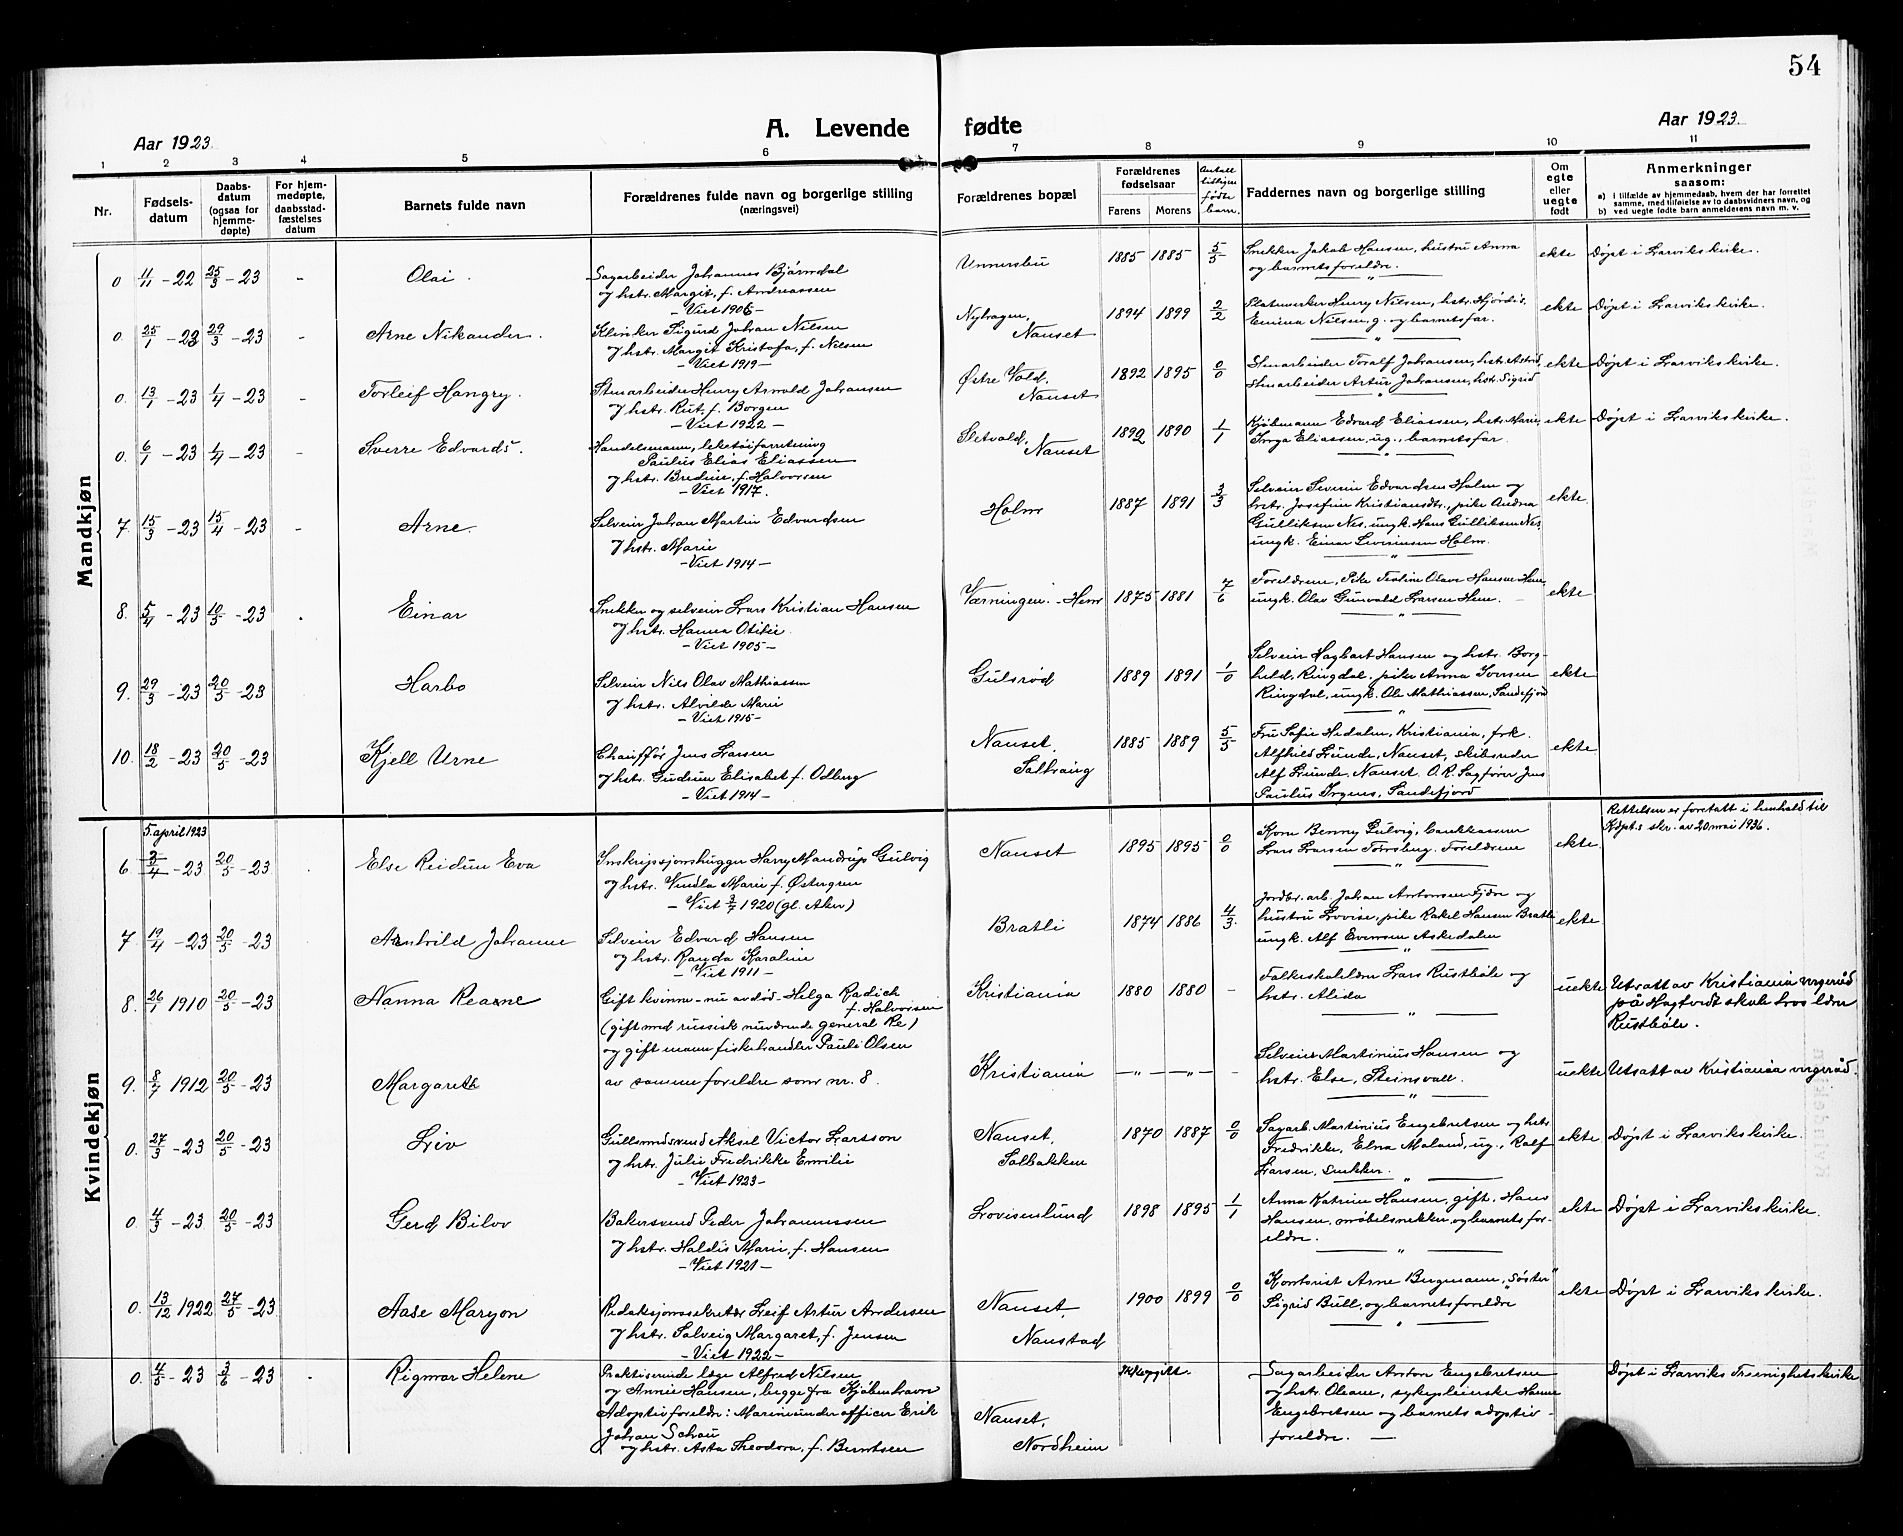 54
A. Levende fødte
Aar 1923.
Aar 1923.
1 2 3 4 5 6 7 8 9 10 11
Nr.
Fødsels-
datum
Daabs-
datum
(ogsaa for
hjemme-
døpte)
For hjem-
medøpte,
daabsstad-
fæstelses
datum
Barnets fulde navn
Forældrenes fulde navn og borgerlige stilling
(næringsvei)
Forældrenes bopæl
Forældrenes
fødselsaar
Farens Morens
Antall
tidligere
fødte
barn.
Faddernes navn og borgerlige stilling
Om
egte
eller
uegte
født
Anmerkninger
saasom:
a) i tilfælde av hjemmedaab, hvem der har forrettet
samme, med tilføielse av to daabsvidners navn, og
b) ved uegte fødte barn anmelderens navn m. v.
Mandkjøn
0 11/11 - 22 25/3 - 23 - Olai. Sagarbeider Johannes Bjørndal Unnersbu 1885 1885 5/5 Snekker Jakob Hansen, hustru Anna ekte Døpt i Larviks kirke.
og hstr. Margit, f. Andreassen og barnets foreldre.
- Viet 1906 -
0. 25/1 - 23 29/3 - 23 - Arne Nikander. Klinker Sigurd Johan Nilsen Nyhagen, 1894 1899 2/2 Platearbeider Henry Nilsen, hstr. Hjørdis, ekte Døpt i Larviks kirke.
og hstr. Margit Kristofa, f. Nilsen Nanset Emma Nilsen, g. og barnets far.
- Viet 1919 -
0. 13/1 - 23 1/4 - 23 - Torleif Hangry. Stenarbeider Henry Arnold Johansen Østre Vold, 1892 1895 0/0 Stenarbeider Toralf Johansen, hstr. Astrid ekte Døpt i Larviks kirke.
og hstr. Rut, f. Borgen Nanset Stenarbeider Artur Johansen, hstr. Sigrid
- Viet 1922 -
0. 6/1 - 23 1/4 - 23 - Sverre Edvards. Handelsmann, leketøiforretning Sletvold, 1892 1890 1/1 Kjøbmann Edvard Eliassen, hstr. Marie, ekte Døpt i Larviks kirke.
Paulus Elias Eliassen Nanset Inga Eliassen, ug., barnets far.
og hstr. Bredine, f. Halvorsen
- Viet 1917.
7. 15/3 - 23 15/4 - 23 - Arne. Selveier Johan Martin Edvardsen Holm 1887 1891 3/3 Selveier Severin Edvardsen Holm og ekte
og hstr. Marie hstr. Josefine Kristiansdtr., pike Andrea
- Viet 1914 - Gulliksen Nes, ungk. Hans Gulliksen Nes,
ungk. Einar Severinsen Holm.
8. 5/4 - 23 10/5 - 23 . Einar Snekker og selveier Lars Kristian Hansen Værningen. - Hem 1875 1881 7/6 Foreldrene, Pike Tioline Olava Hansen Hem, ekte
og hstr. Hanna Otilie. ungk. Olav Gunvald Larsen Hem.
- Viet 1905 -
9. 29/3 - 23 20/5 - 23 Harbo Selveier Nils Olav Mathiassen Gulsrød 1889 1891 1/0 Selveier Hagbart Hansen og hstr. Borg- ekte
og hstr. Alvilde Marie hild, Ringdal, pike Anna Iversen
- Viet 1915 - Ringdal, ungk. Ole Mathiassen, Sandefjord
10. 18/2 - 23 20/5 - 23 Kjell Urne Chauffør Jens Larsen Nanset, 1885 1889 5/5 Fru Sofie Hedalen, Kristiania, frk. ekte
og hstr. Gudrun Elisabet f. Odberg Solhaug Alfhild Lunde, Nanset, skibsreder
- Viet 1914 - Alf Lunde, Nanset. O. R. Sagfører Jens
Paulus Irgens, Sandefjord
Kvindekjøn
5. april 1923 Rettelsen er foretatt i henhold til
Kdpt.s skr. av 20 mai 1936.
6 3/4 - 23 20/5 - 23 Else Reidun Eva Inskripsjonshugger Harry Mandrup Gulvig Nanset 1895 1895 0/0 Kone Benny Gulvig, bankkasserer ekte
og hstr. Vendla Marie f. Østergren Lars Larsen Tønsberg. Foreldrene
- Viet 3/7 1920 (gl. Aker)
7 19/4 - 23 20/5 - 23 Arnhild Johanne Selveier Edvard Hansen Bratli 1874 1886 4/3. Jordbr. arb. Johan Antonsen Fjære og ekte.
og hstr. Ragda Karoline hustru Lovise, pike Rakel Hansen Bratli
- Viet 1911 - ungk. Alf Evensen Askedalen
8. 26/7 1910 20/5 - 23 Nanna Rearne Gift kvinne - nu avdød - Helga Radich Kristiania 1880 1880 - Folkeskolelærer Lars Rustbøle og uekte Utsatt av Kristiania vergeråd
f. Halvorsen hstr. Alida på Hagtvedt skole hos lærer
(gift med russisk nuværende general Re) Rustbøle.
og gift mann fiskehandler Pauli Olsen
9. 8/7 1912 20/5 - 23 Margareth av samme foreldre som nr. 8. Kristiania - " - - " - - Selveier Martinius Hansen og uekte Utsatt av Kristiania vergeråd.
hstr. Else, Steinsvoll.
0. 27/3 - 23 20/5 - 23 Liv Gullsmedsvend Aksel Victor Larsson Nanset, 1870 1887 0/0 Sagarb. Martinius Engebretsen og hstr. ekte Døpt i Larviks kirke.
og hstr. Julie Fredrikke Emilie Solbakken Fredrikke, Elna Moland, ug., Ralf
- Viet 1923 - Larsen, snekker.
0. 4/3 - 23 20/5 - 23 Gerd Bilov Bakersvend Peder Johannessen Lovisenlund 1898 1895 1/1 Anna Katrine Hansen, gift, Hans ekte Døpt i Larviks kirke.
og hstr. Haldis Marie, f. Hansen Hansen, møbelsnekker, og barnets for-
- Viet 1921 - eldre.
0. 13/12 1922 27/5 - 23 Aase Maryon Redaksjonssekretær Leif Artur Andersen Nanset, 1900 1899 0/0 Kontorist Arne Bergmann, "Søster" ekte Døpt i Larviks kirke.
og hstr. Solveig Margaret, f. Jensen Nanstad Sigrid Bull, og barnets foreldre
- Viet 1922 -
0. 4/5 - 23 3/6 - 23 . Rigmor Helene Praktiserende læge Alfred Nilsen Nanset, Ikke opgitt. Sagarbeider Anton Engebretsen Døpt i Larviks Treenighetskirke
og Annie Hansen, begge fra Kjøbenhavn Nordheim og hstr. Oleane, sykepleierske Hanna
Adoptivforeldre: Marineunderofficer Erik Engebretsen og barnets adoptiv-
Johan Schau foreldre. -
og hstr. Asta Theodora, f. Berntsen